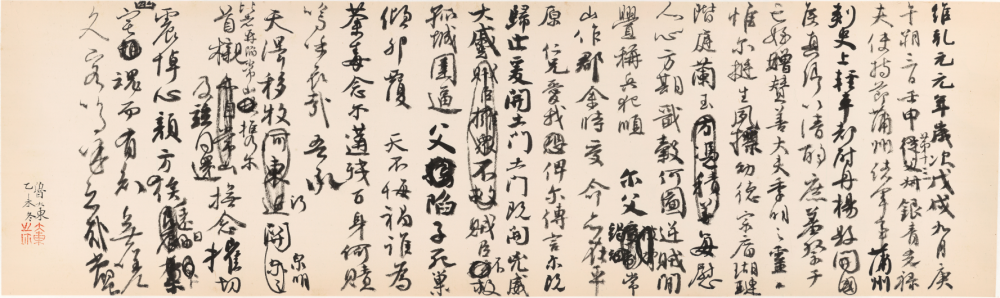 維乾元元年歲次戊戌九月庚
午朔三日壬申第十三叔銀青光祿
夫使持節蒲州諸軍事蒲州
刺史上輕車都尉丹楊縣開國
侯真卿以清酌庶羞祭于
亡姪贈贊善大夫季明之靈
惟爾挺生夙標幼德宗廟瑚璉
階庭蘭玉方憑積善每慰
人心方期戩穀何圖逆賊閒
釁稱兵犯順 爾父竭誠常
山作郡余時受命亦在平
原仁兄愛我恐俾爾傳言爾既
歸止爰開土門土門既開兇威
大蹙賊臣擁眾不救賊臣不救
孤城圍逼父陷子死巢
傾卵覆 天不悔禍誰為
荼毒念爾遘殘百身何贖
嗚呼哀哉吾承
天澤移牧河東近河關 泉明
比者再陷常山攜爾
首櫬及茲同還撫念摧切
震悼心顏方俟遠日
幽宅魂而有知無嗟
久客嗚呼哀哉尚饗
魯大東
乙未冬